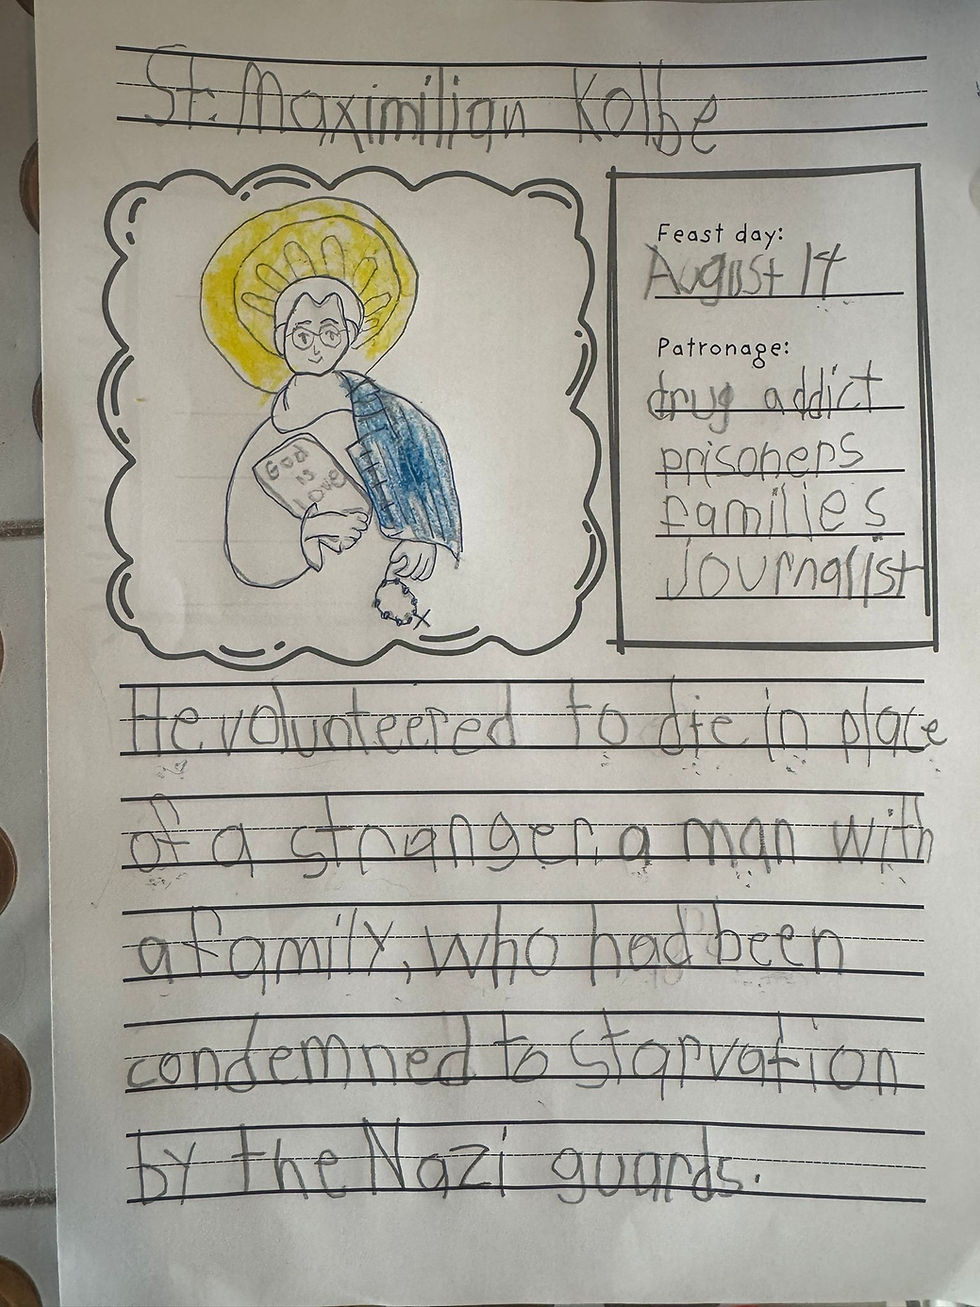 St. Maximilian Kolbe
Feast day:
August 14
Patronage:
drug addict
prisoners
families
journalist
God
is
Love
He volunteered to die in place
of a stranger, a man with
a family, who had been
condemned to starvation
by the Nazi guards.